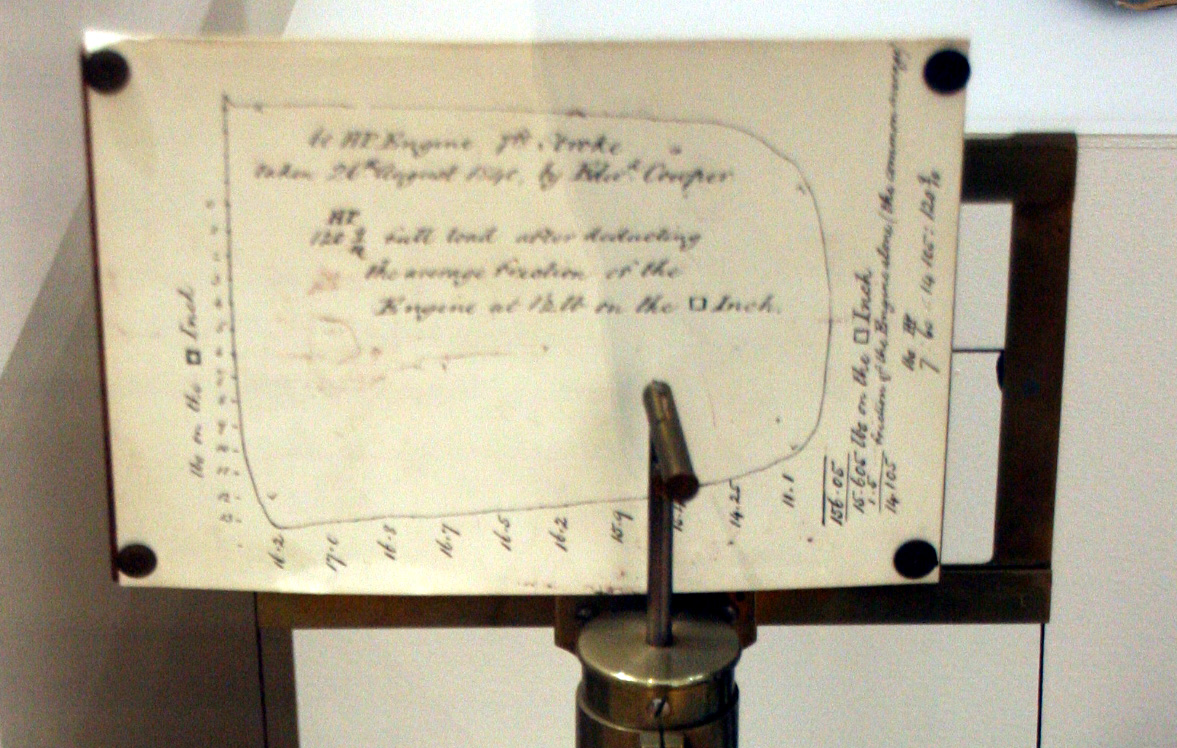 60 HP Engine 7 ft Stroke
taken 26th August 1840, by Edwd. Cowper
HP
120 8/10 full load after deducting
the average friction of the
Engine at 1½ lb on the □ Inch.
lbs on the □ Inch
16.2 17.0 16.8 16.7 16.5 16.2 15.9 14.25 11.1
156.05
15.605 lbs on the □ Inch
1.5 friction of the Engine alone (the common average)
14.105
lbs HP
7 : 60 :: 14.105 : 120 8/10